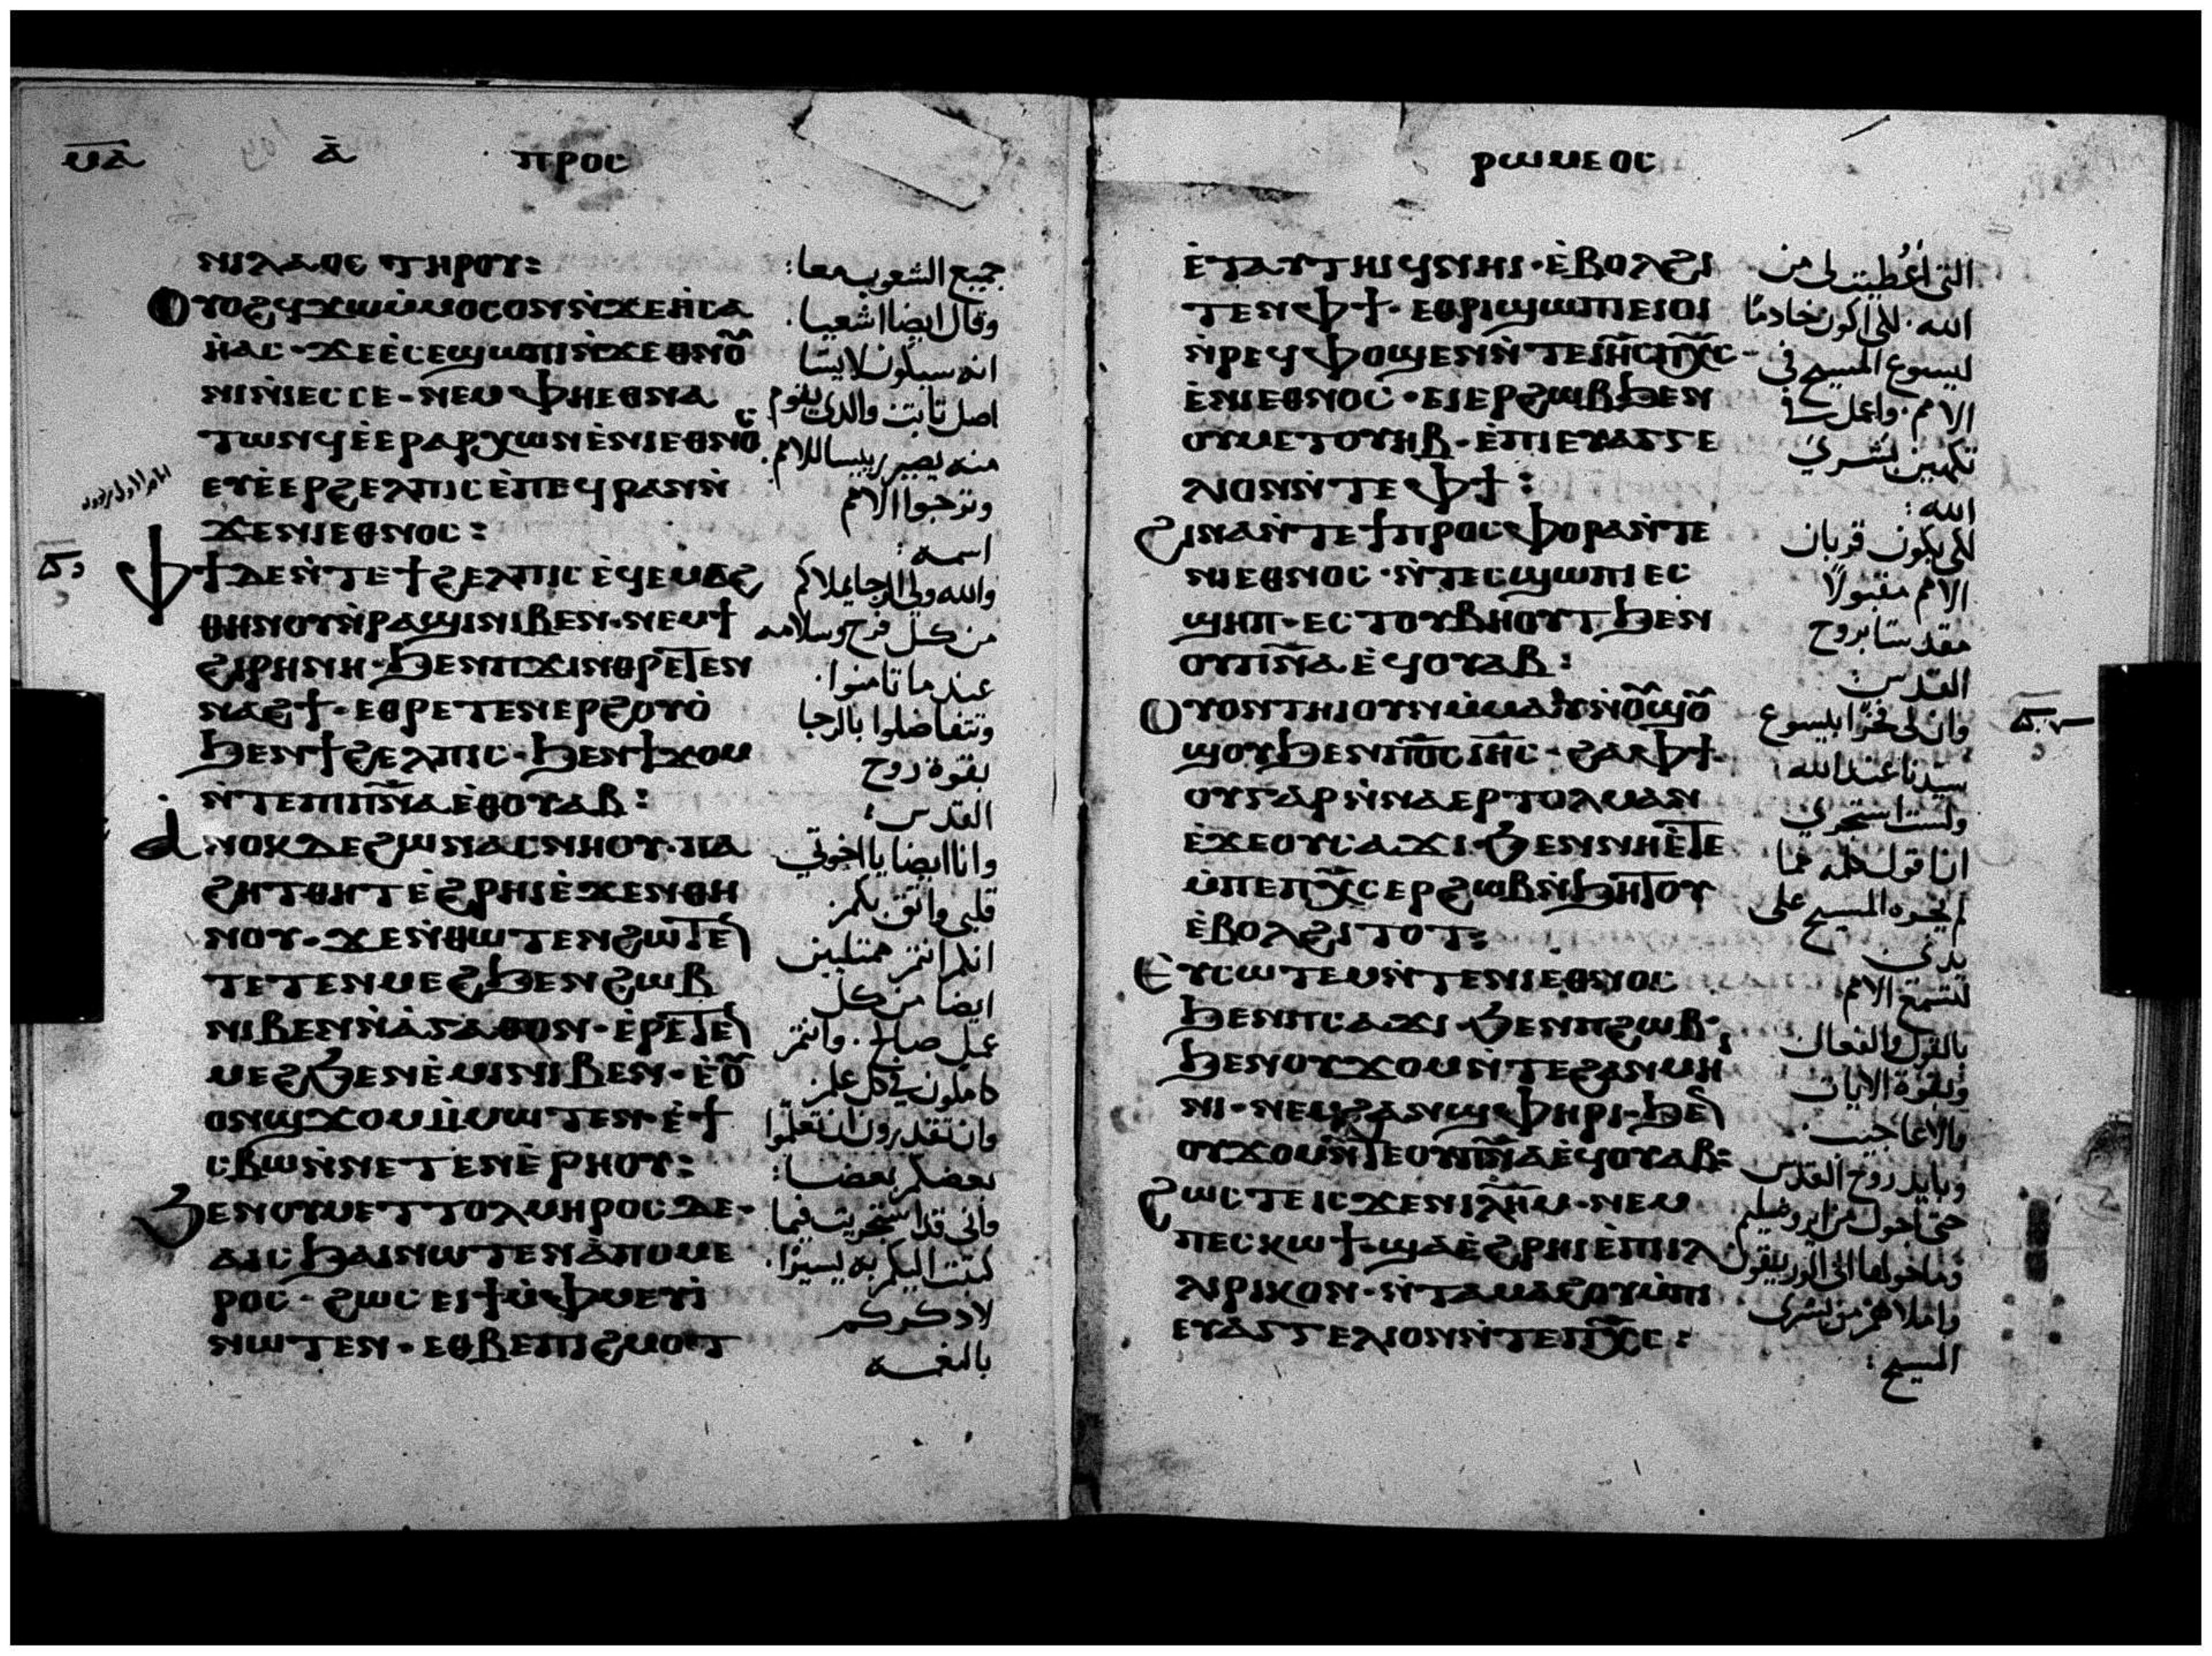 ⲙⲁ ⲁ̅ ⲡⲣⲟⲥ
ⲛⲓⲗⲁⲟⲥ ⲧⲏⲣⲟⲩ:
ⲟⲩⲟϩϥϫⲱⲙ̀ⲙⲟⲥⲟⲛⲛ̀ϫⲉⲏ̀ⲥⲁ
ⲏ̀ⲁⲥ·ϫⲉⲉ̀ⲥⲉϣⲱⲡⲓⲛ̀ϫⲉⲑⲛⲟ̅
ⲛⲓⲛ̀ⲓⲉⲥⲥⲉ·ⲛⲉⲙⲫⲏⲉⲑⲛⲁ
ⲧⲱⲛϥⲉ̀ⲉⲣⲁⲣⲭⲱⲛⲉ̀ⲛⲓⲉⲑⲛⲟⲥ
ⲉⲩⲉ̀ⲉⲣϩⲉⲗⲡⲓⲥⲉ̀ⲡⲉϥⲣⲁⲛⲛ̀
ϫⲉⲛⲓⲉⲑⲛⲟⲥ:
ⲫϯⲇⲉⲛ̀ⲧⲉϯϩⲉⲗⲡⲓⲥⲉ̀ϥⲉⲙⲁϩ
ⲑⲏⲛⲟⲩⲛ̀ⲣⲁϣⲓⲛⲓⲃⲉⲛ·ⲛⲉⲙϯ
ϩⲓⲣⲏⲛⲏ·ϧⲉⲛⲡϫⲓⲛⲑⲣⲉⲧⲉⲛ
ⲛⲁϩϯ·ⲉⲑⲣⲉⲧⲉⲛⲉⲣϩⲟⲩⲟ̀
ϧⲉⲛϯϩⲉⲗⲡⲓⲥ·ϧⲉⲛϯϫⲟⲙ
ⲛ̀ⲧⲉⲡⲓⲡⲛ̅ⲁⲉ̀ⲑⲟⲩⲁⲃ:
ⲁⲛⲟⲕⲇⲉϩⲱⲛⲁⲥⲛⲏⲟⲩ·ⲡⲁ
ϩⲏⲧⲑⲏⲧⲉ̀ϩⲣⲏⲓⲉ̀ϫⲉⲛⲑⲏ
ⲛⲟⲩ·ϫⲉⲛ̀ⲑⲱⲧⲉⲛϩⲱⲧⲉ̅
ⲧⲉⲧⲉⲛⲙⲉϩϧⲉⲛϩⲱⲃ
ⲛⲓⲃⲉⲛⲛ̀ⲁ̀ⲅⲁⲑⲟⲛ·ⲉ̀ⲣⲉⲧⲉ̅
ⲙⲉϩϧⲉⲛⲉ̀ⲙⲓⲛⲓⲃⲉⲛ·ⲉ̀ⲟ̅
ⲟⲛϣϫⲟⲙⲙ̀ⲙⲱⲧⲉⲛ·ⲉ̀ϯ
ⲥⲃⲱⲛ̀ⲛⲉⲧⲉⲛⲉ̀ⲣⲏⲟⲩ:
ϧⲉⲛⲟⲩⲙⲉⲧⲧⲟⲗⲙⲏⲣⲟⲥⲇⲉ·
ⲁⲓⲥϧⲁⲓⲛⲱⲧⲉⲛⲁ̀ⲡⲟⲙⲉ
ⲣⲟⲥ·ϩⲱⲥⲉⲓϯⲙ̀ⲫⲙⲉⲩⲓ̀
ⲛⲱⲧⲉⲛ·ⲉⲑⲃⲉⲡⲓϩⲙⲟⲧ
جميع الشعوب معا:
وقال ايضا اشعيا.
انه سيكون لايسا
اصل ثابت والدي يقوم
منه يصير رييسا للامم.
وتترجوا الامم
اسمه:
والله ولى الرجا يملاكم
من كل فرح وسلامه
عندما تامنوا.
وتتفاضلوا بالرجا
بقوة روح
القدس:
وانا ايضا يا اخوتي
قلبى واثق بكم
انكم انتم ممتليين
ايضا من كل
عمل صالح. وانتم
كاملون في كل علم
وانتم تقدرون ان تعلموا
بعضكم بعضا:
وانى قد استجريت فيما
كتبت اليكم به يسيرا.
لادكركم
بالنعمه
ⲣⲱⲙⲉⲟⲥ
ⲉ̀ⲧⲁⲩⲧⲏⲓϥⲛⲏⲓ·ⲉ̀ⲃⲟⲗϩⲓ
ⲧⲉⲛⲫϯ·ⲉⲑⲣⲓϣⲱⲡⲓⲉⲓⲟⲓ
ⲛ̀ⲣⲉϥⲫⲟϣⲉⲛⲛ̀ⲧⲉⲓⲏ̅ⲥⲡⲭ̅ⲥ·
ⲉ̀ⲛⲓⲉⲑⲛⲟⲥ·ⲉⲓⲉⲣϩⲱⲃϧⲉⲛ
ⲟⲩⲙⲉⲧⲟⲩⲏⲃ·ⲉ̀ⲡⲓⲉⲩⲁⲅⲅⲉ
ⲗⲓⲟⲛⲛ̀ⲧⲉⲫϯ:
ϩⲓⲛⲁⲛ̀ⲧⲉϯⲡⲣⲟⲥⲫⲟⲣⲁⲛ̀ⲧⲉ
ⲛⲓⲉⲑⲛⲟⲥ·ⲛ̀ⲧⲉⲥϣⲱⲡⲓⲉⲥ
ϣⲏⲡ·ⲉⲥⲧⲟⲩⲃⲏⲟⲩⲧϧⲉⲛ
ⲟⲩⲡⲛ̅ⲁ·ⲉ̀ϥⲟⲩⲁⲃ:
ⲟⲩⲟⲛⲧⲏⲓⲟⲩⲛⲙ̀ⲙⲁⲩⲛ̀ⲟ̅ϣⲟ̅
ϣⲟⲩϧⲉⲛⲡⲟ̅ⲥⲓⲏ̅ⲥ·ϩⲁⲫϯ·
ⲟⲩⲅⲁⲣⲛ̀ⲛⲁⲉⲣⲧⲟⲗⲙⲁⲛ
ⲉ̀ϫⲉⲟⲩⲥⲁϫⲓ·ϧⲉⲛⲛⲏⲉ̀ⲧⲉ
ⲙ̀ⲡⲉⲡⲭ̅ⲥⲉⲣϩⲱⲃⲛ̀ϧⲏⲧⲟⲩ
ⲉ̀ⲃⲟⲗϩⲓⲧⲟⲧ:
ⲉ̀ⲩⲥⲱⲧⲉⲙⲛ̀ⲧⲉⲛⲓⲉⲑⲛⲟⲥ
ϧⲉⲛⲡⲥⲁϫⲓ·ϧⲉⲛⲡϩⲱⲃ:
ϧⲉⲛⲟⲩϫⲟⲙⲛ̀ⲧⲉϩⲁⲛⲙⲏ
ⲛⲓ·ⲛⲉⲙϩⲁⲛϣⲫⲏⲣⲓ·ϧⲉ̅
ⲟⲩϫⲟⲙⲛ̀ⲧⲉⲟⲩⲡⲛ̅ⲁⲉ̀ϥⲟⲩⲁⲃ:
ϩⲱⲥⲧⲉⲓⲥϫⲉⲛⲓⲗⲏ̅ⲙ·ⲛⲉⲙ
ⲡⲉⲥⲕⲱϯ·ϣⲁⲉ̀ϩⲣⲏⲓⲉ̀ⲡⲓⲓⲗ
ⲗⲓⲣⲓⲕⲟⲛ·ⲛ̀ⲧⲁⲙⲁϩⲟⲩⲙ̀ⲡⲓ
ⲉⲩⲁⲅⲅⲉⲗⲓⲟⲛⲛ̀ⲧⲉⲡⲭ̅ⲥ:
التى اعطيت لى من
الله. لكى اكون خادمًا
ليسوع المسيح فى
الامم. واعمل فى
تكهين بشرى
الله:
لكى يكون قربان
الامم مقبولًا
مقدسا بروح
القدس
وان لى فخرًا بيسوع
سيدنا عند الله:
ولست استجرى
ان اقول كلمه مما
لم يجره المسيح على
يدى
لتسمع الامم
بالقول والفعال
وبقوة الايات
والاعاجيب.
وبايد روح القدس
حتى اجول من ايروشليم
وما حولها الى اللوريقون
واملاهم من بشرى
المسيح: